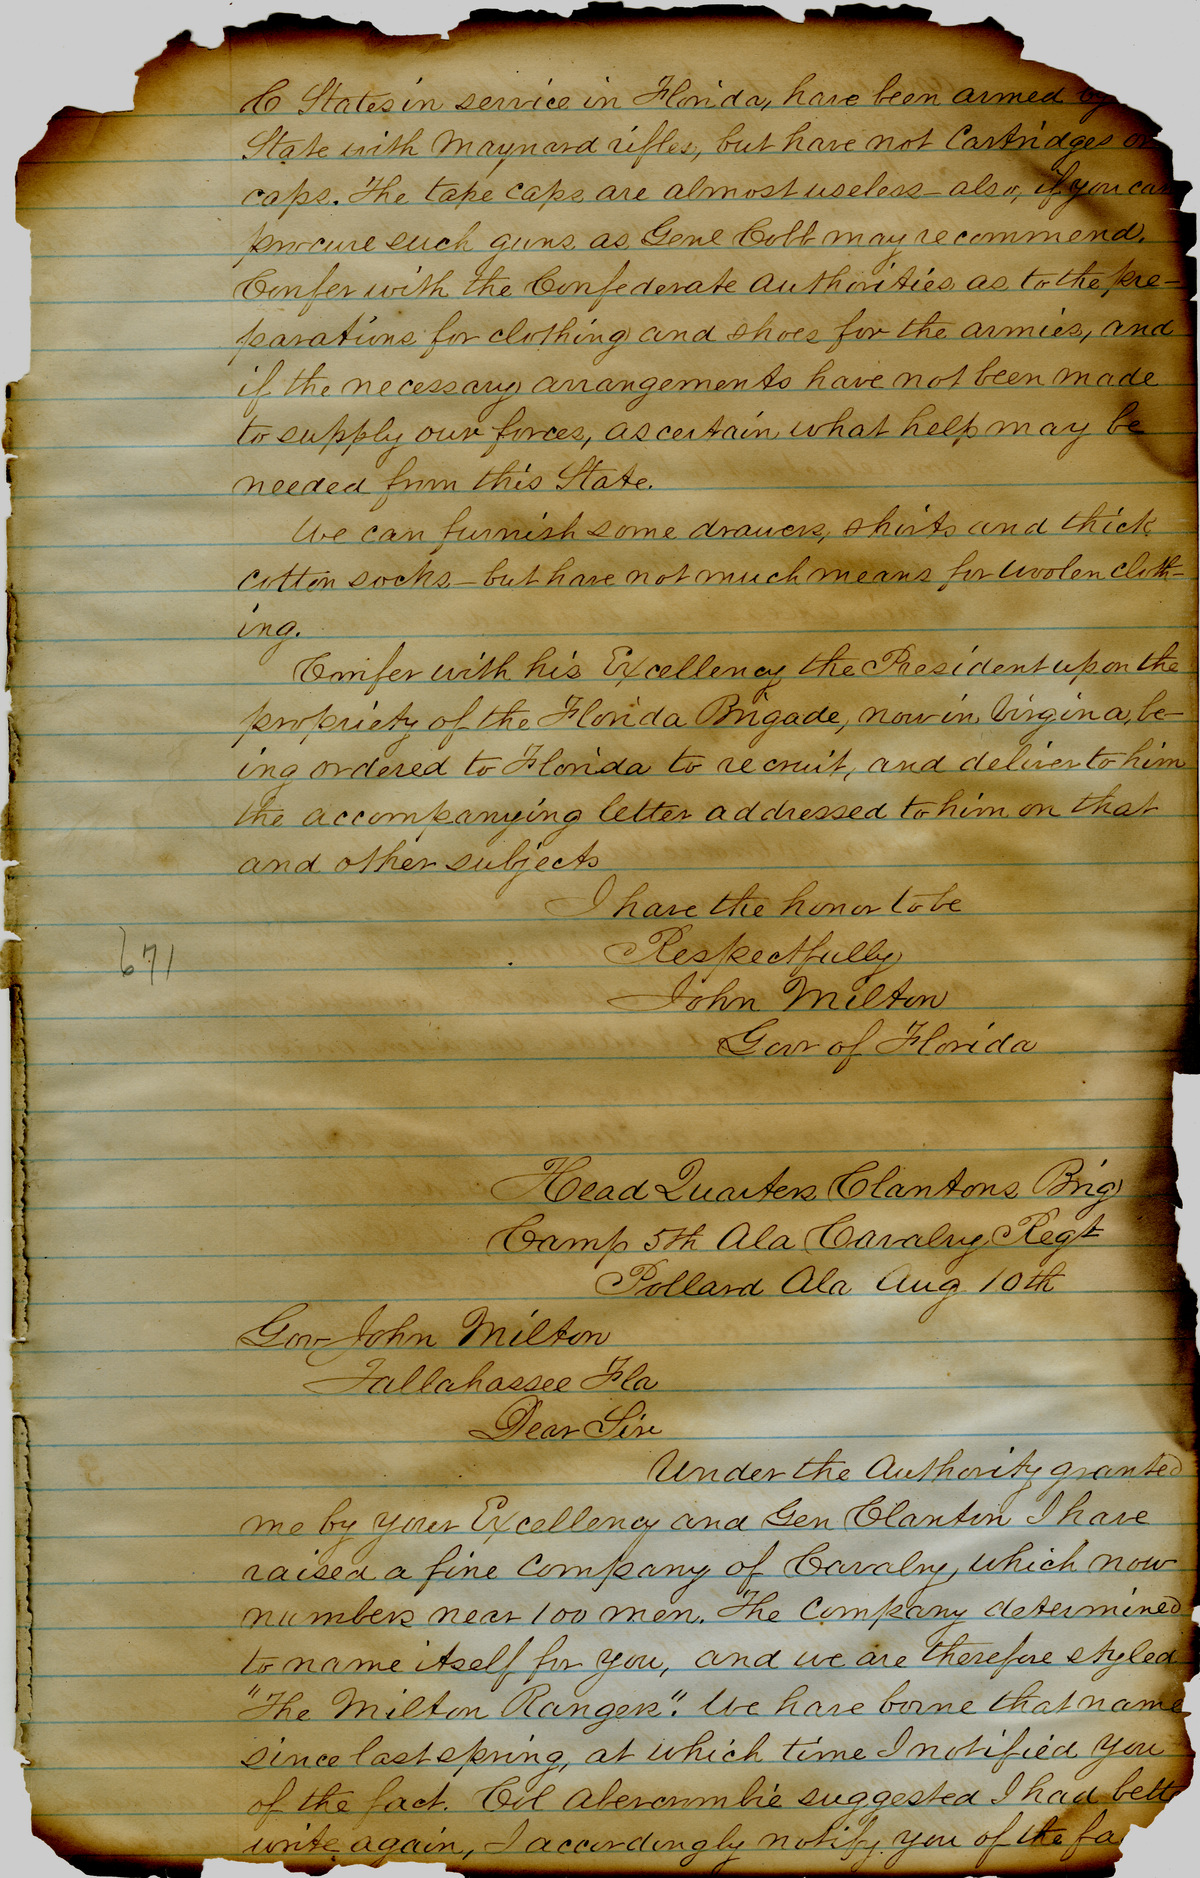 C States in service in Florida, have been armed by
State with Maynard rifles, but have not Cartridges or
caps. The tape caps are almost useless – also, if you can
procure such guns as Genl Cobb may recommend.
Confer with the Confederate Authorities as to the pre-
parations for clothing and shoes for the armies, and
if the necessary arrangements have not been made
to supply our forces, ascertain what help may be
needed from this State.
We can furnish some drawers, shirts and thick
cotton socks – but have not much means for woolen cloth-
ing.
Confer with his Excellency the President upon the
propriety of the Florida Brigade, now in Virgina, be-
ing ordered to Florida to recruit, and deliver to him
the accompanying letter addressed to him on that
and other subjects
I have the honor to be
Respectfully
John Milton
Govr of Florida
671
Head Quarters Clantons Brig
Camp 5th Ala Cavalry Regt
Pollard Ala Aug 10th
Gov John Milton
Tallahassee Fla
Dear Sir
Under the Authority granted
me by your Excellency and Gen Clanton I have
raised a fine Company of Cavalry, which now
numbers near 100 men. The Company determined
to name itself for you, and we are therefore styled
"The Milton Rangers". We have borne that name
since last spring, at which time I notified you
of the fact. Col Abercrombie suggested I had bette
write again, I accordingly notify you of the fa